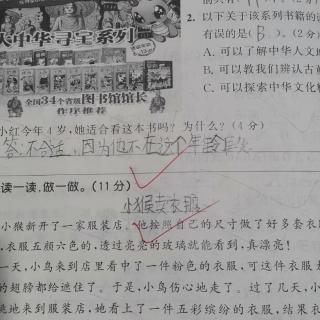 大中华寻宝系列
全国34个省级图书馆馆长
作序推荐
2. 以下关于该系列书籍的说
有误的是( B )。(2分)
A. 可以了解中华人文地
B. 可以教我们辨认古董
C. 可以探索中华文化精
小红今年4岁,她适合看这本书吗?为什么?(4分)
答:不合适,因为他不在这个年龄
读一读,做一做。(11分)
小猴卖衣服
小猴新开了一家服装店。他按照自己的尺寸做了好多套衣
,衣服五颜六色的,透过亮亮的玻璃就能看到,真漂亮!
一天,小鸟来到店里看中了一件粉色的衣服,可这件衣服是
的翅膀都给遮住了。于是,小鸟伤心地走了。过了几天,小
跳地来到服装店,她看上了一件五彩缤纷的衣服,结果衣